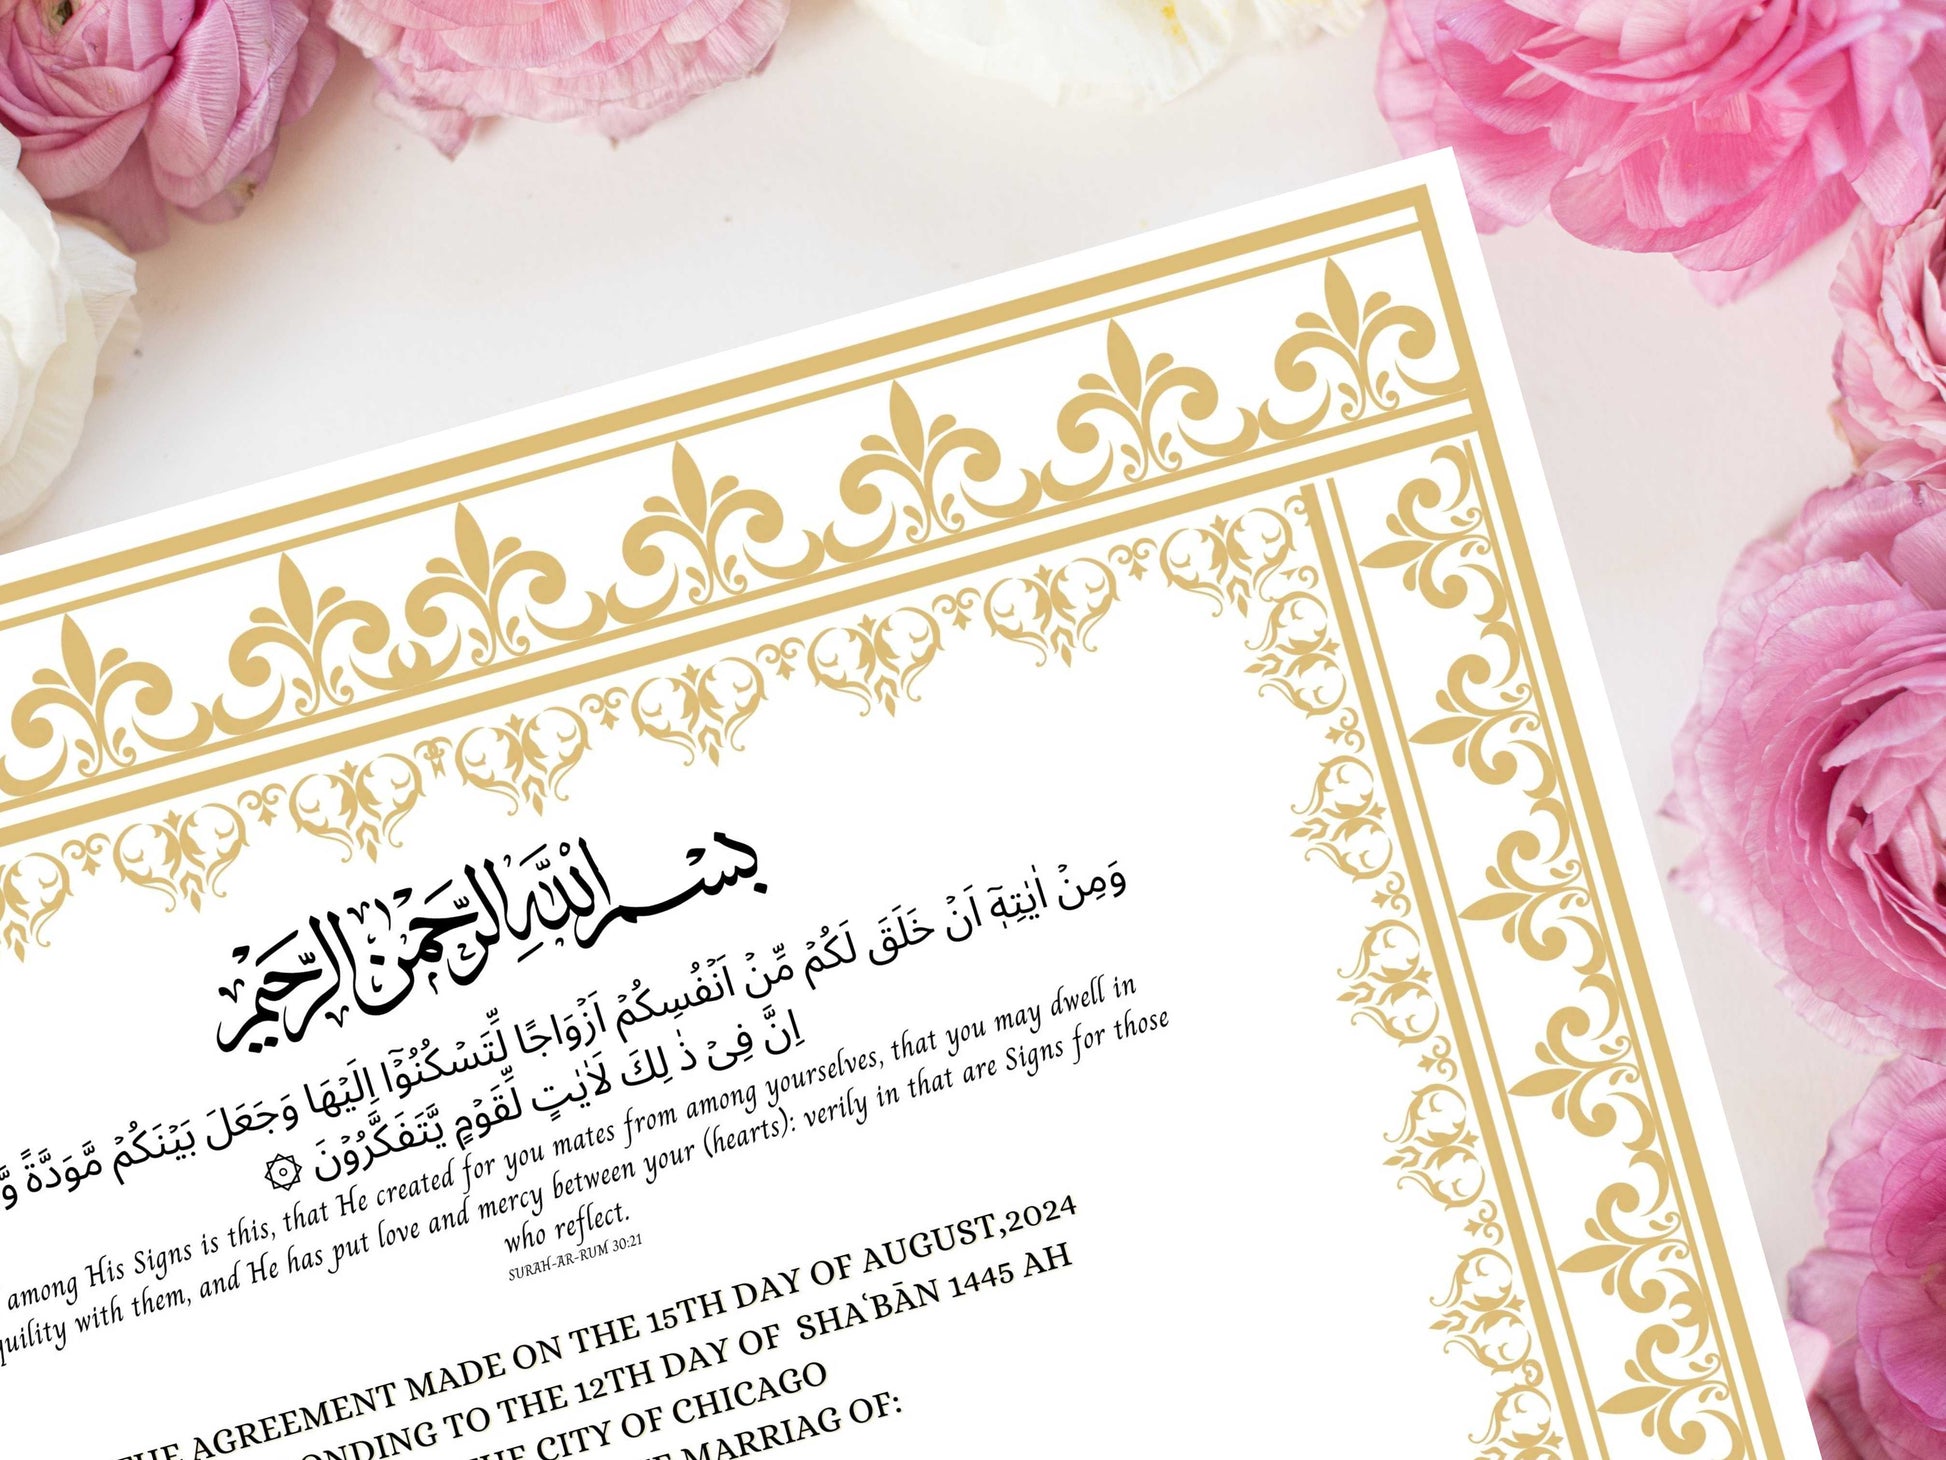 بسم الله الرحمن الرحيم
وَمِنۡ اٰيٰتِهٖۤ اَنۡ خَلَقَ لَكُمۡ مِّنۡ اَنۡفُسِكُمۡ اَزۡوَاجًا لِّتَسۡكُنُوۡۤا اِلَيۡهَا وَجَعَلَ بَيۡنَكُمۡ مَّوَدَّةً
اِنَّ فِىۡ ذٰ لِكَ لَاٰيٰتٍ لِّقَوۡمٍ يَّتَفَكَّرُوۡنَ ۞
among His Signs is this, that He created for you mates from among yourselves, that you may dwell in
with them, and He has put love and mercy between your (hearts): verily in that are Signs for those
who reflect.
SURAH-AR-RUM 30:21
AGREEMENT MADE ON THE 15TH DAY OF AUGUST,2024
TO THE 12TH DAY OF SHAʿBĀN 1445 AH
CITY OF CHICAGO
MARRIAG OF: